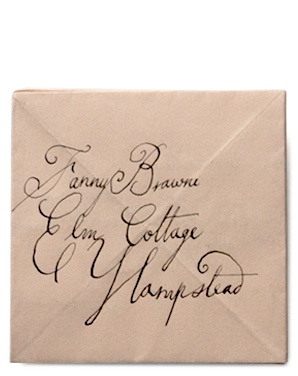 Fanny Brawne
Elm Cottage
Hampstead